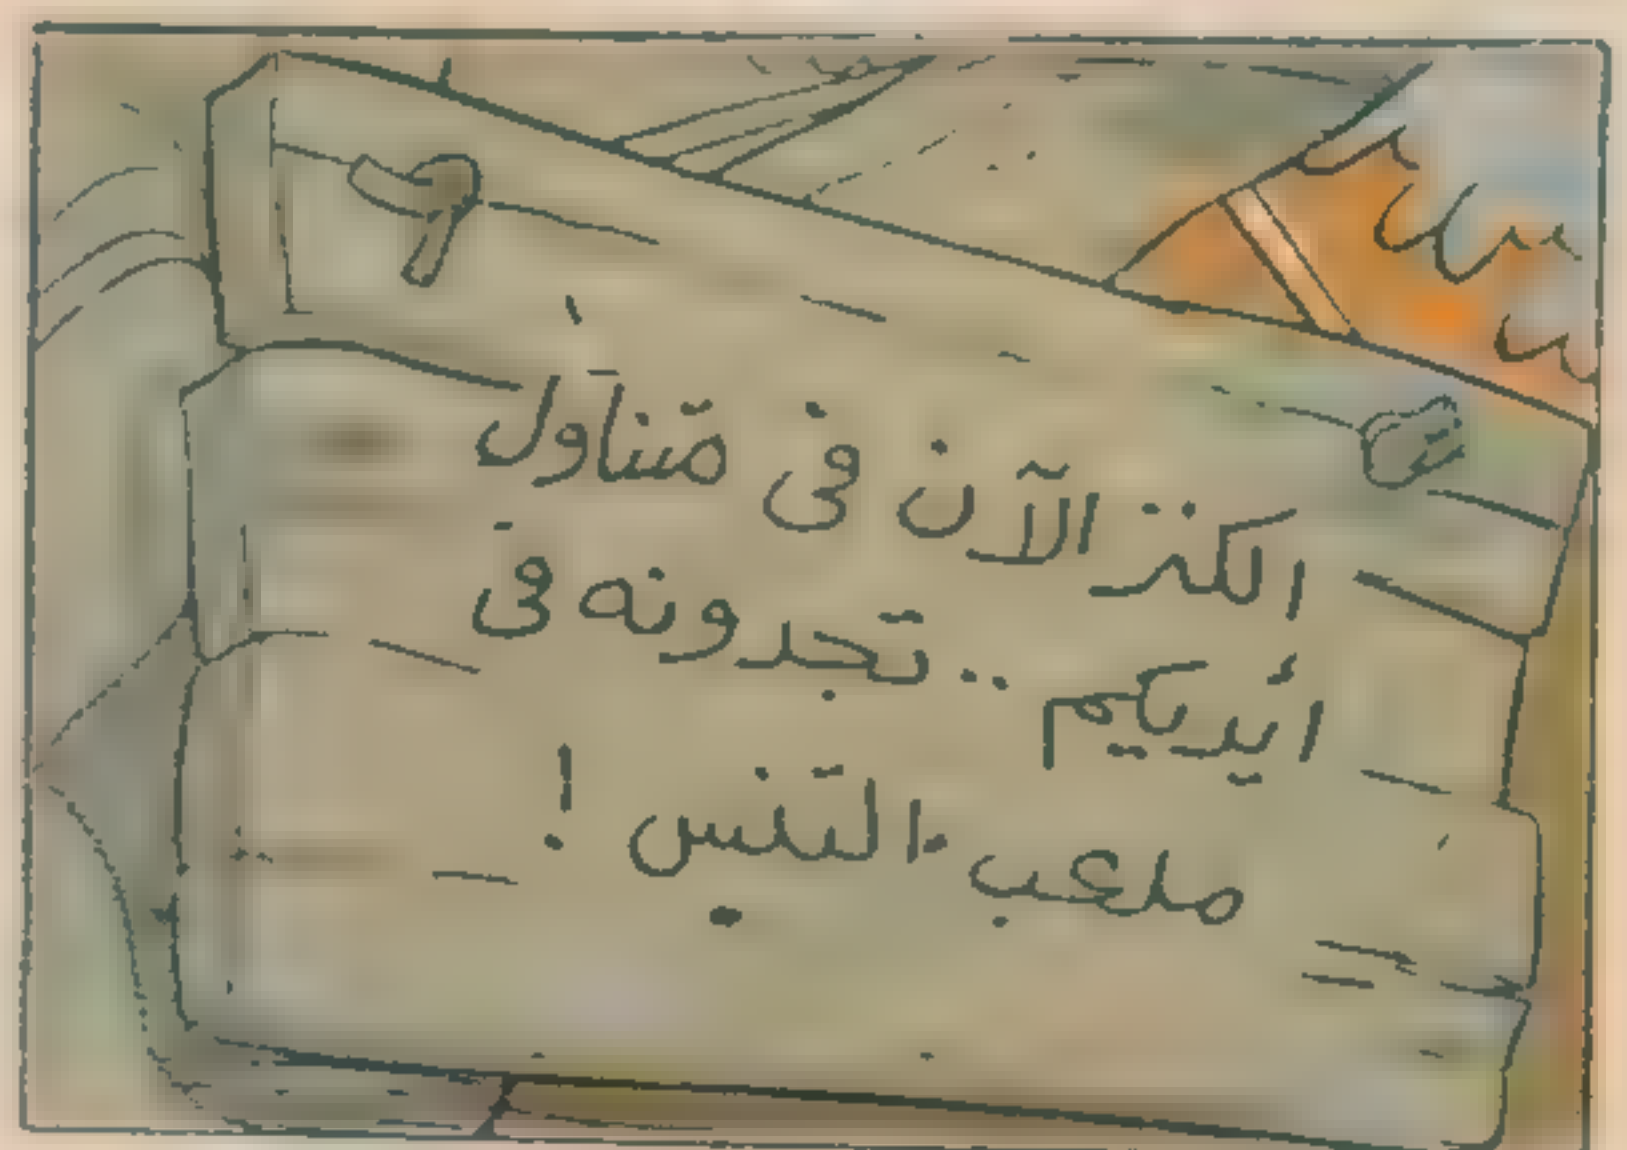 الكنز الآن فى متناول
أيديكم .. تجدونه فى
ملعب التنس !